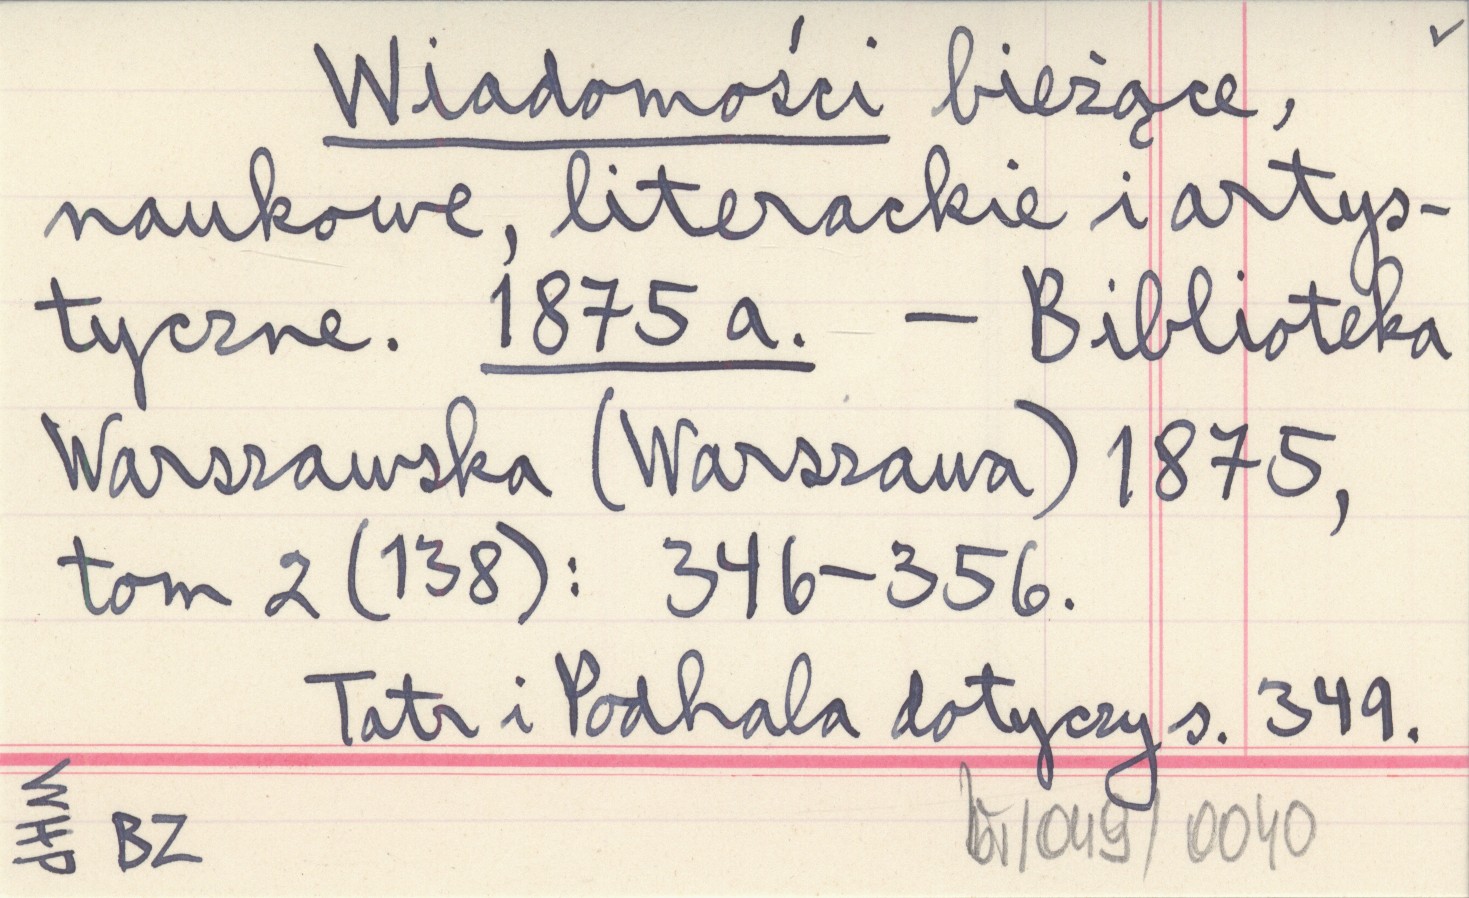 Wiadomości bieżące,
naukowe, literackie i artys-
tyczne. 1875 a. — Biblioteka
Warszawska (Warszawa) 1875,
tom 2 (138): 346-356.
Tatr i Podhala dotyczy s. 349.
WHP
BZ
/049/ 0040